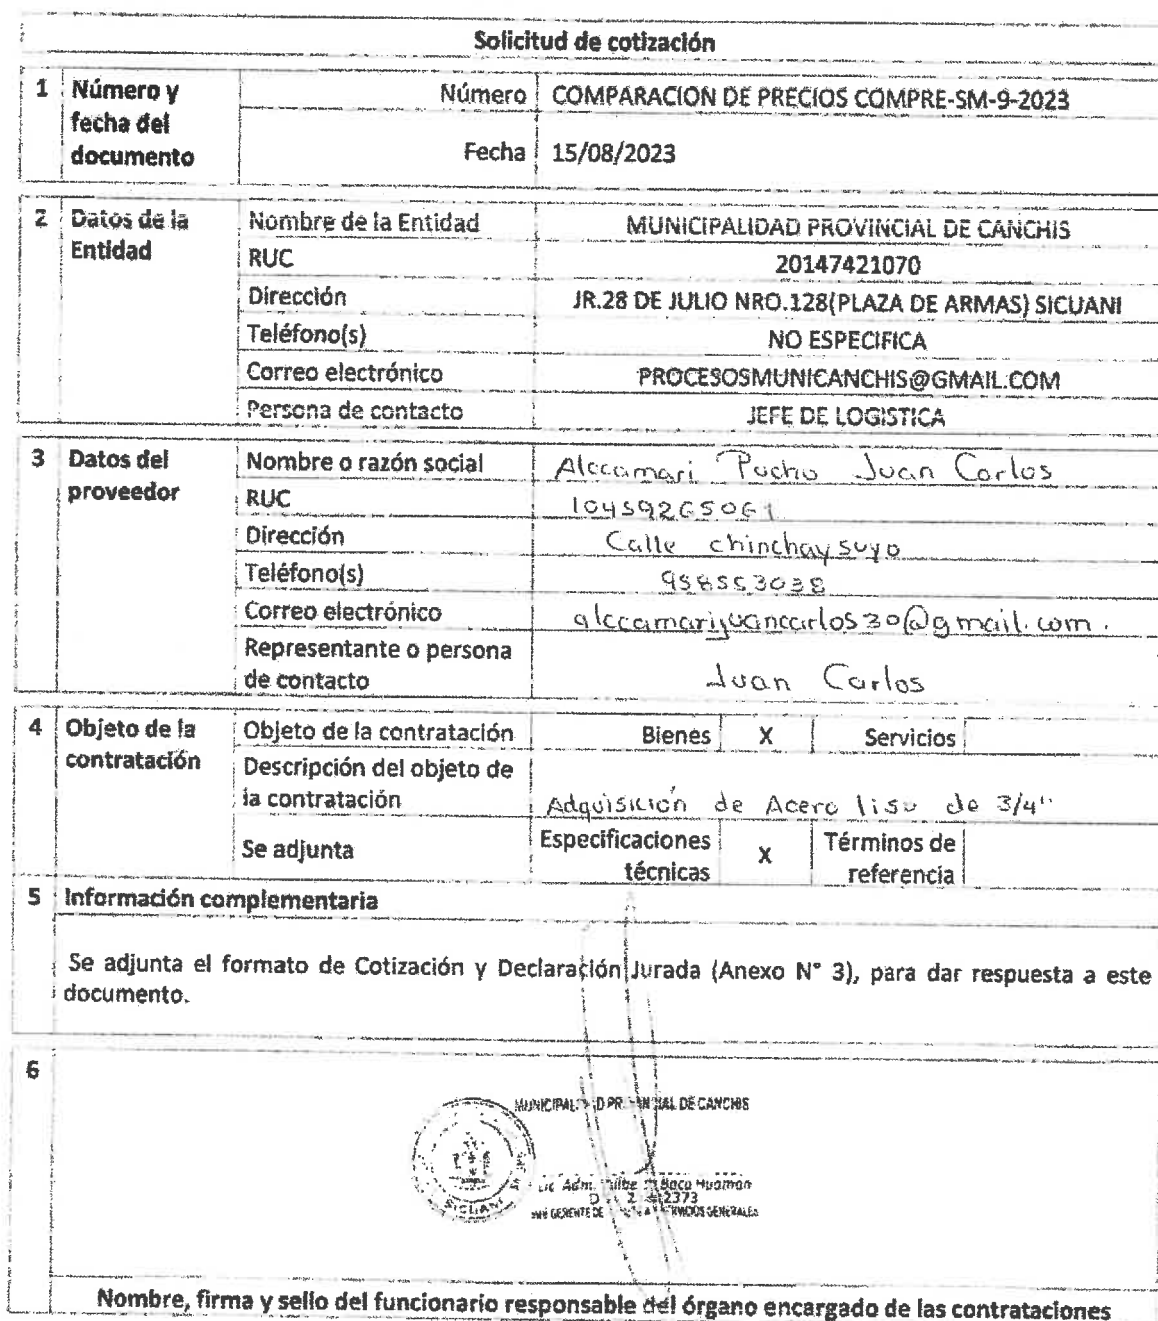 Solicitud de cotización
1 Número y fecha del documento
Número COMPARACION DE PRECIOS COMPRE-SM-9-2023
Fecha 15/08/2023
2 Datos de la Entidad
Nombre de la Entidad MUNICIPALIDAD PROVINCIAL DE CANCHIS
RUC 20147421070
Dirección JR.28 DE JULIO NRO.128(PLAZA DE ARMAS) SICUANI
Teléfono(s) NO ESPECIFICA
Correo electrónico PROCESOSMUNICANCHIS@GMAIL.COM
Persona de contacto JEFE DE LOGISTICA
3 Datos del proveedor
Nombre o razón social Alccamari Pucho Juan Carlos
RUC 10459265061
Dirección Calle chinchaysuyo
Teléfono(s) 958553038
Correo electrónico alccamarijuancarlos30@gmail.com.
Representante o persona de contacto Juan Carlos
4 Objeto de la contratación
Objeto de la contratación Bienes X Servicios
Descripción del objeto de la contratación Adquisición de Acero liso de 3/4"
Se adjunta Especificaciones técnicas X Términos de referencia
5 Información complementaria
Se adjunta el formato de Cotización y Declaración Jurada (Anexo N° 3), para dar respuesta a este
documento.
6
MUNICIPALIDAD PROVINCIAL DE CANCHIS
SICUANI
Lic Adm. Baca Huaman
2373
GERENTE DE SERVICIOS GENERALES
Nombre, firma y sello del funcionario responsable del órgano encargado de las contrataciones